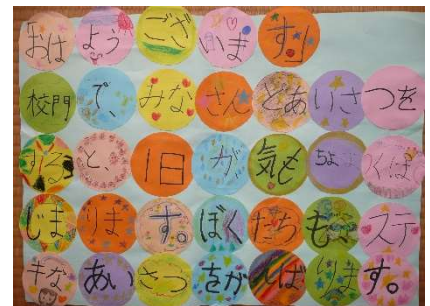 「おはようございます」
校門で、みなさんとあいさつを
すると、1日が気もちよくは
じまります。ぼくたちも、ステ
キなあいさつをがんばります。